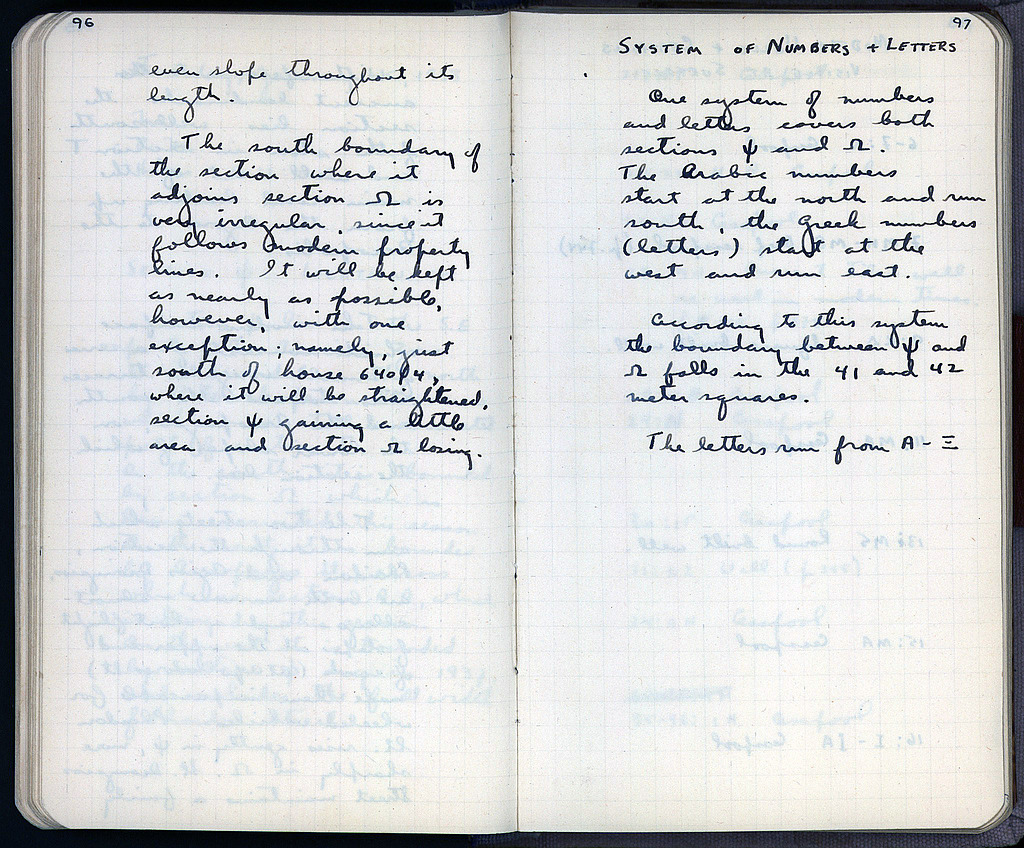 96
even slope throughout its
length.
The south boundary of
the section where it
adjoins section Ω is
very irregular, since it
follows modern property
lines. It will be left
as nearly as possible,
however, with one
exception; namely, just
south of house 640/4,
where it will be straightened,
section ψ gaining a little
area and section Ω losing.
97
SYSTEM OF NUMBERS + LETTERS
One system of numbers
and letters covers both
sections ψ and Ω.
The Arabic numbers
start at the north and run
south, the Greek numbers
(letters) start at the
west and run east.
According to this system
the boundary between ψ and
Ω falls in the 41 and 42
meter squares.
The letters run from A - Ξ